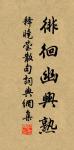 徘徊幽興熟
釋曉瑩散句詞典網集